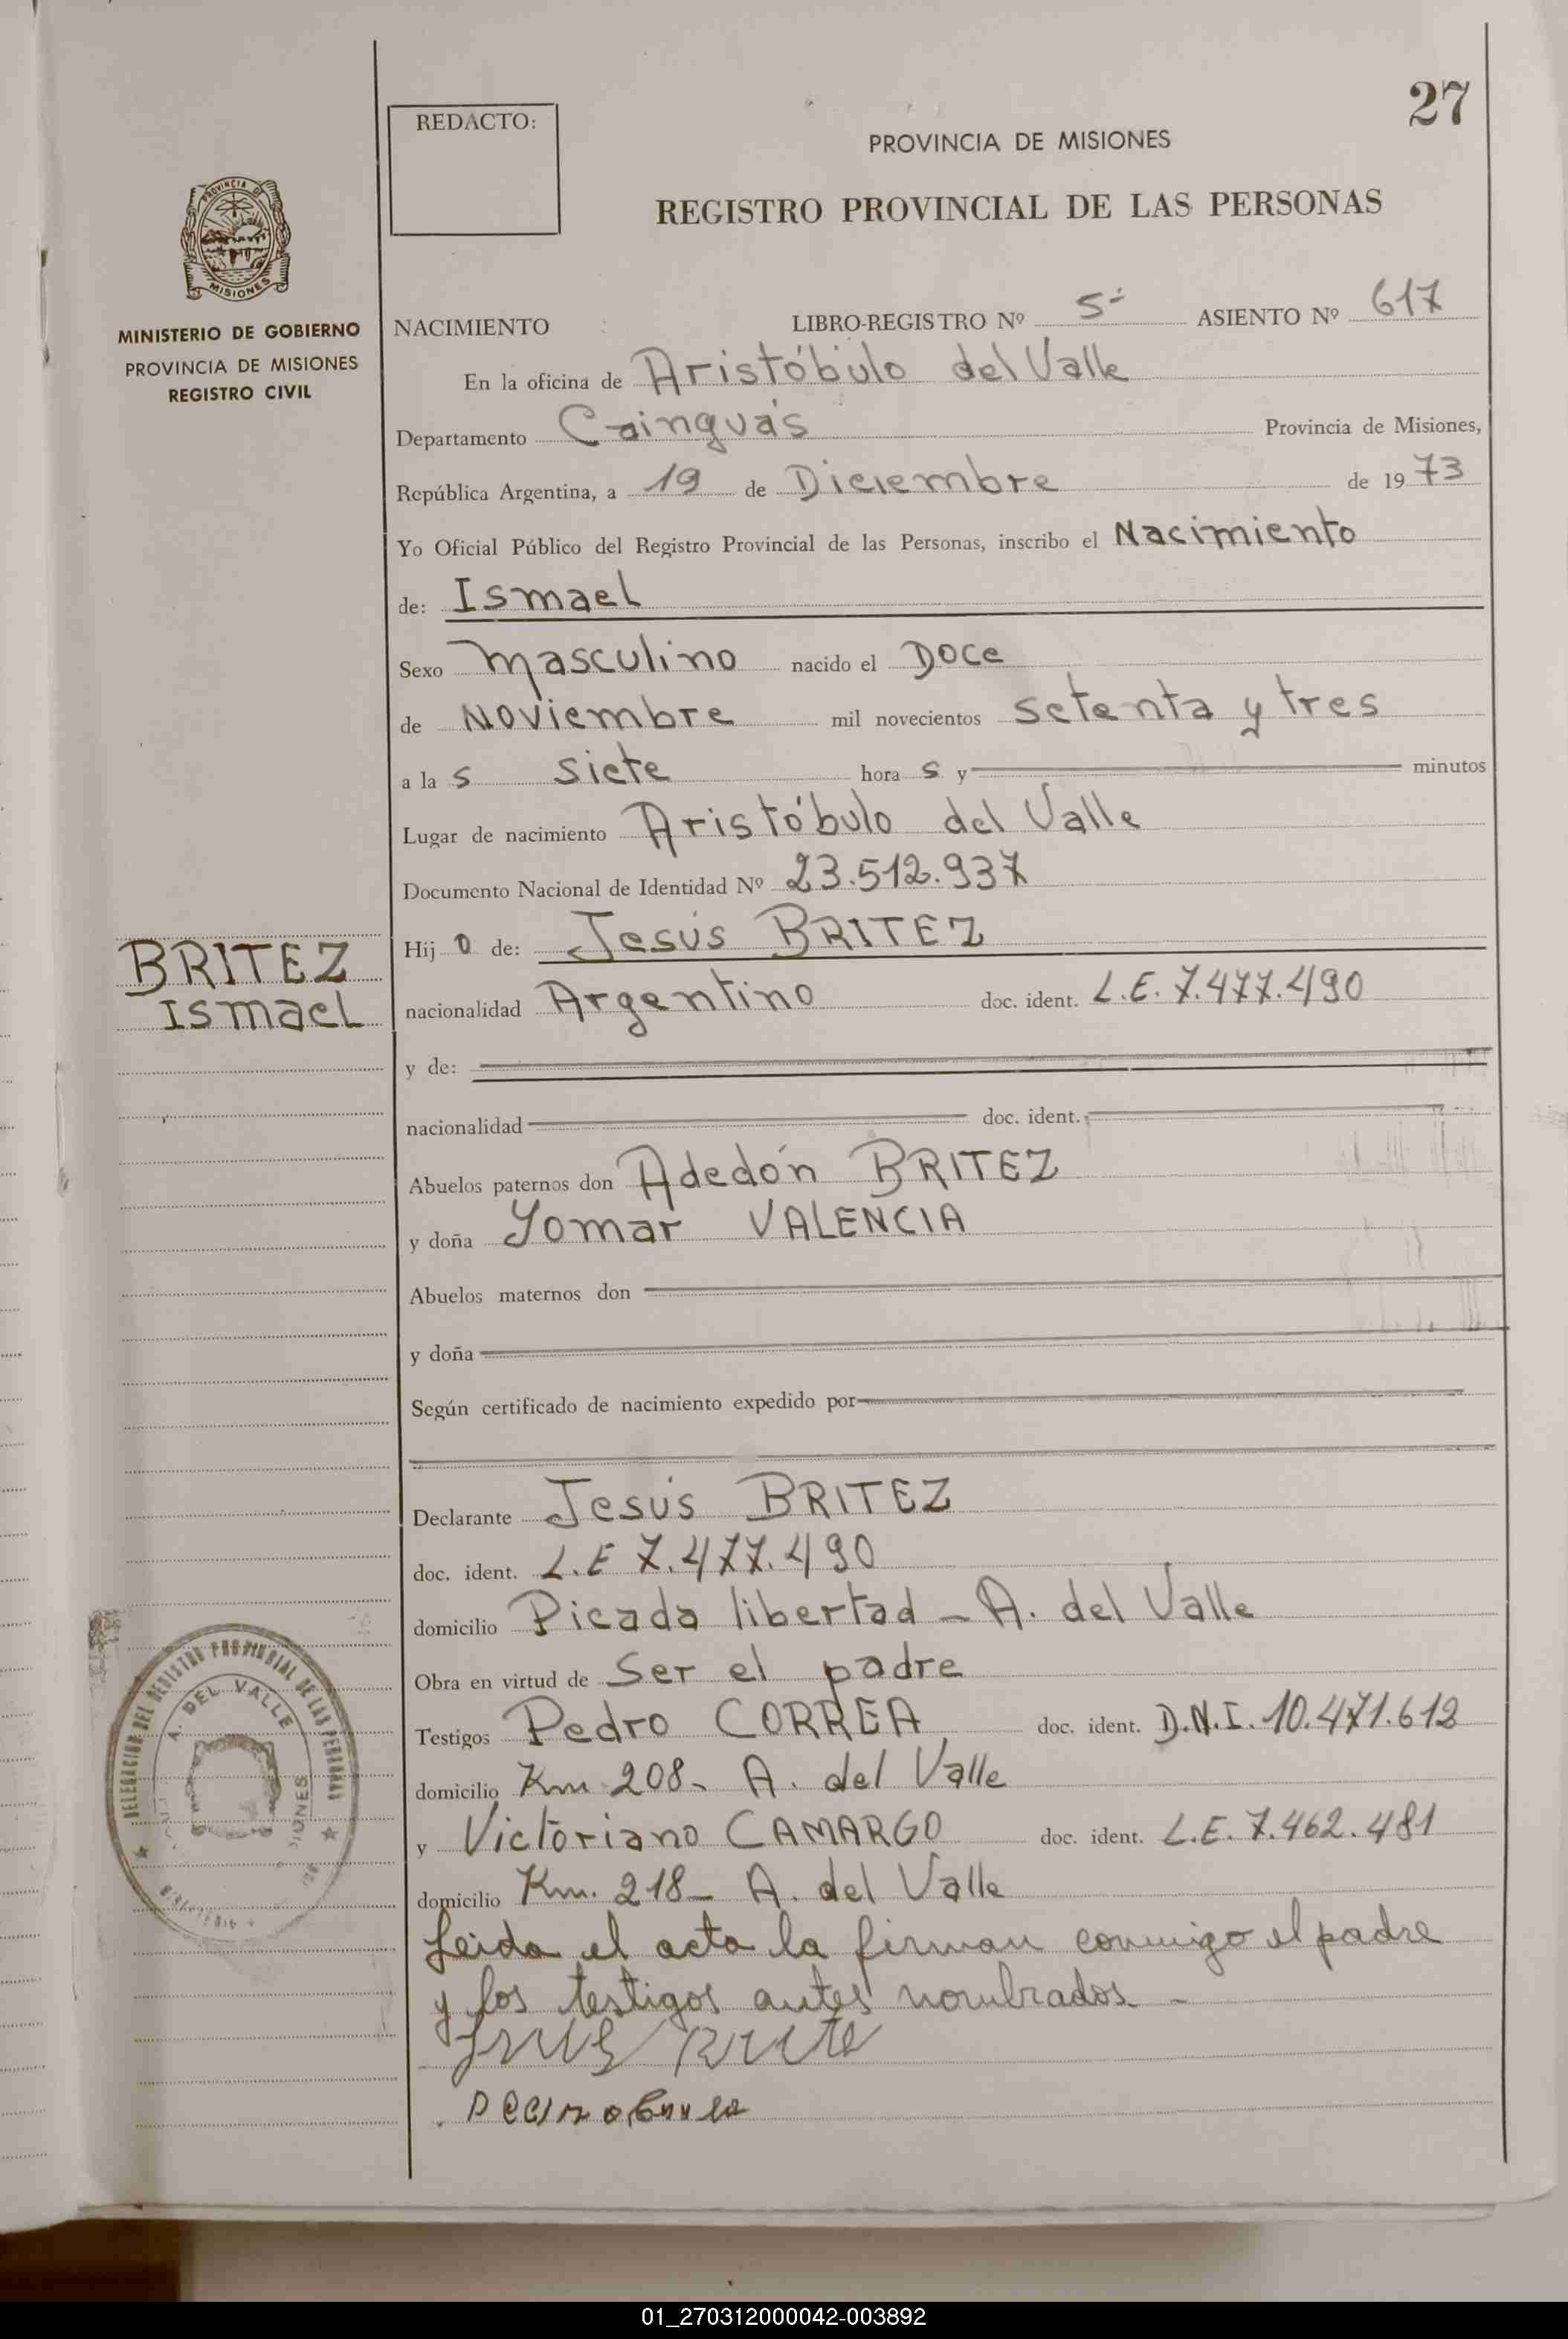 27
REDACTO:
PROVINCIA DE MISIONES
REGISTRO PROVINCIAL DE LAS PERSONAS
PROVINCIA DE
MISIONES
MINISTERIO DE GOBIERNO
PROVINCIA DE MISIONES
REGISTRO CIVIL
NACIMIENTO LIBRO-REGISTRO Nº 5- ASIENTO Nº 617
En la oficina de Aristóbulo del Valle
Departamento Cainguás Provincia de Misiones,
República Argentina, a 19 de Diciembre de 19 73
Yo Oficial Público del Registro Provincial de las Personas, inscribo el Nacimiento
de: Ismael
Sexo masculino nacido el Doce
de Noviembre mil novecientos setenta y tres
a la s siete hora s y minutos
Lugar de nacimiento Aristóbulo del Valle
Documento Nacional de Identidad Nº 23.512.937
Hij o de: Jesús BRITEZ
BRITEZ
Ismael
nacionalidad Argentino doc. ident. L.E. 7.477.490
y de:
nacionalidad doc. ident.
Abuelos paternos don Adedón BRITEZ
y doña Yomar VALENCIA
Abuelos maternos don
y doña
Según certificado de nacimiento expedido por
Declarante Jesús BRITEZ
doc. ident. L.E 7.477.490
domicilio Picada libertad - A. del Valle
Obra en virtud de Ser el padre
Testigos Pedro CORREA, doc. ident. D.N.I. 10.471.612
domicilio Km 208- A. del Valle
y Victoriano CAMARGO doc. ident. L.E. 7.462.481
domicilio Km. 218- A. del Valle
Leida el acta la firman conmigo el padre
y los testigos antes nombrados. -
DELEGACION DEL REGISTRO PROVINCIAL DE LAS PERSONAS
A. DEL VALLE
01_270312000042-003892